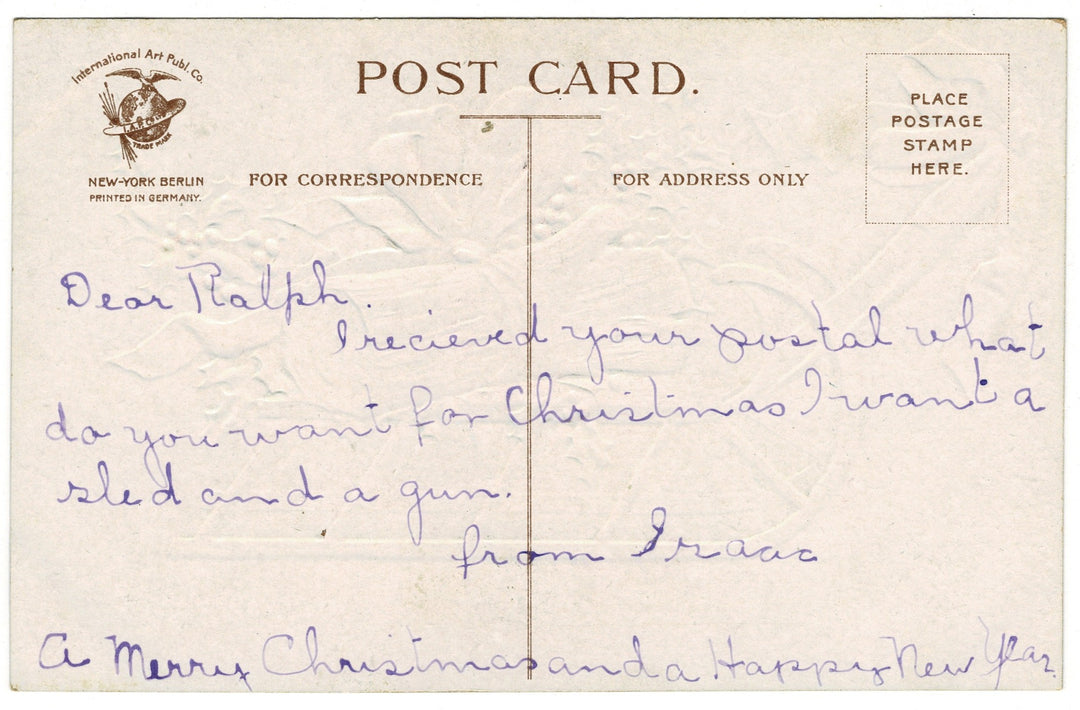 International Art Publ. Co.
TRADE MARK
NEW-YORK BERLIN
PRINTED IN GERMANY.
POST CARD.
FOR CORRESPONDENCE
FOR ADDRESS ONLY
PLACE
POSTAGE
STAMP
HERE.
Dear Ralph.
I recieved your postal what
do you want for Christmas I want a
sled and a gun.
from Isaac
A Merry Christmas and a Happy New Year.